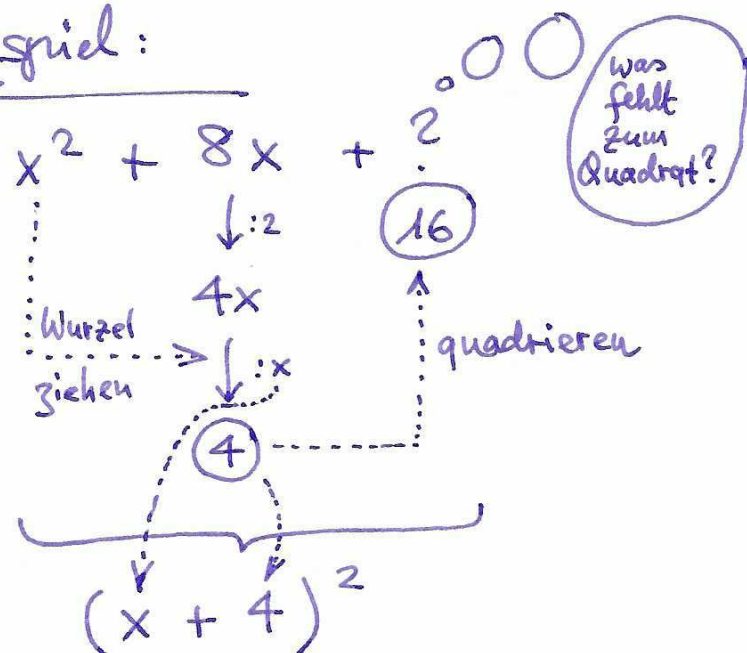 spiel:
was
fehlt
zum
Quadrat?
x² + 8x + ?
:2
16
4x
Wurzel
ziehen
:x
quadrieren
4
(x + 4)²